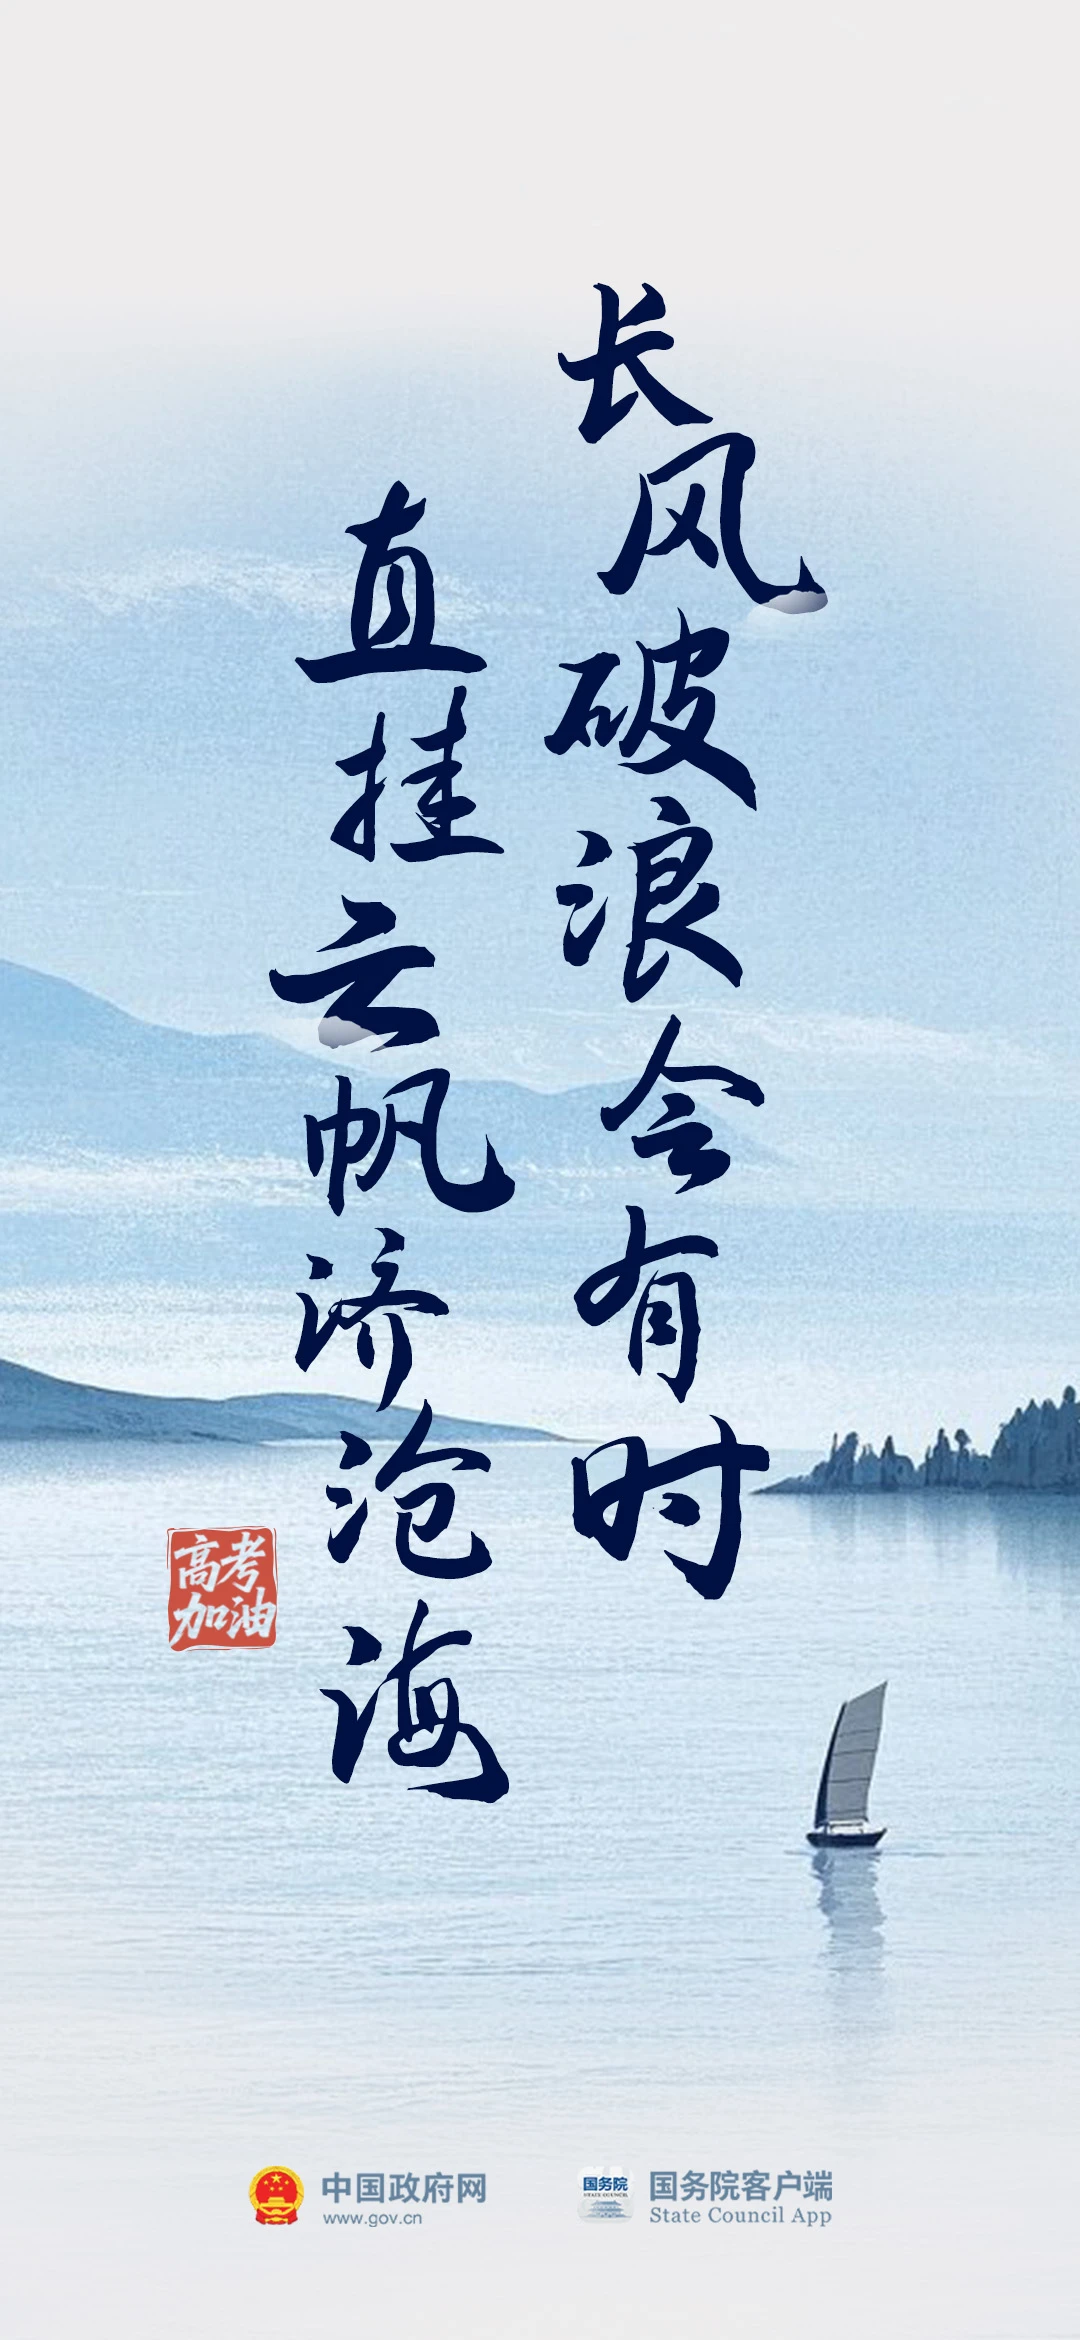 长风破浪会有时
直挂云帆济沧海
高考
加油
中国政府网
www.gov.cn
国务院
STATE COUNCIL
国务院客户端
State Council App